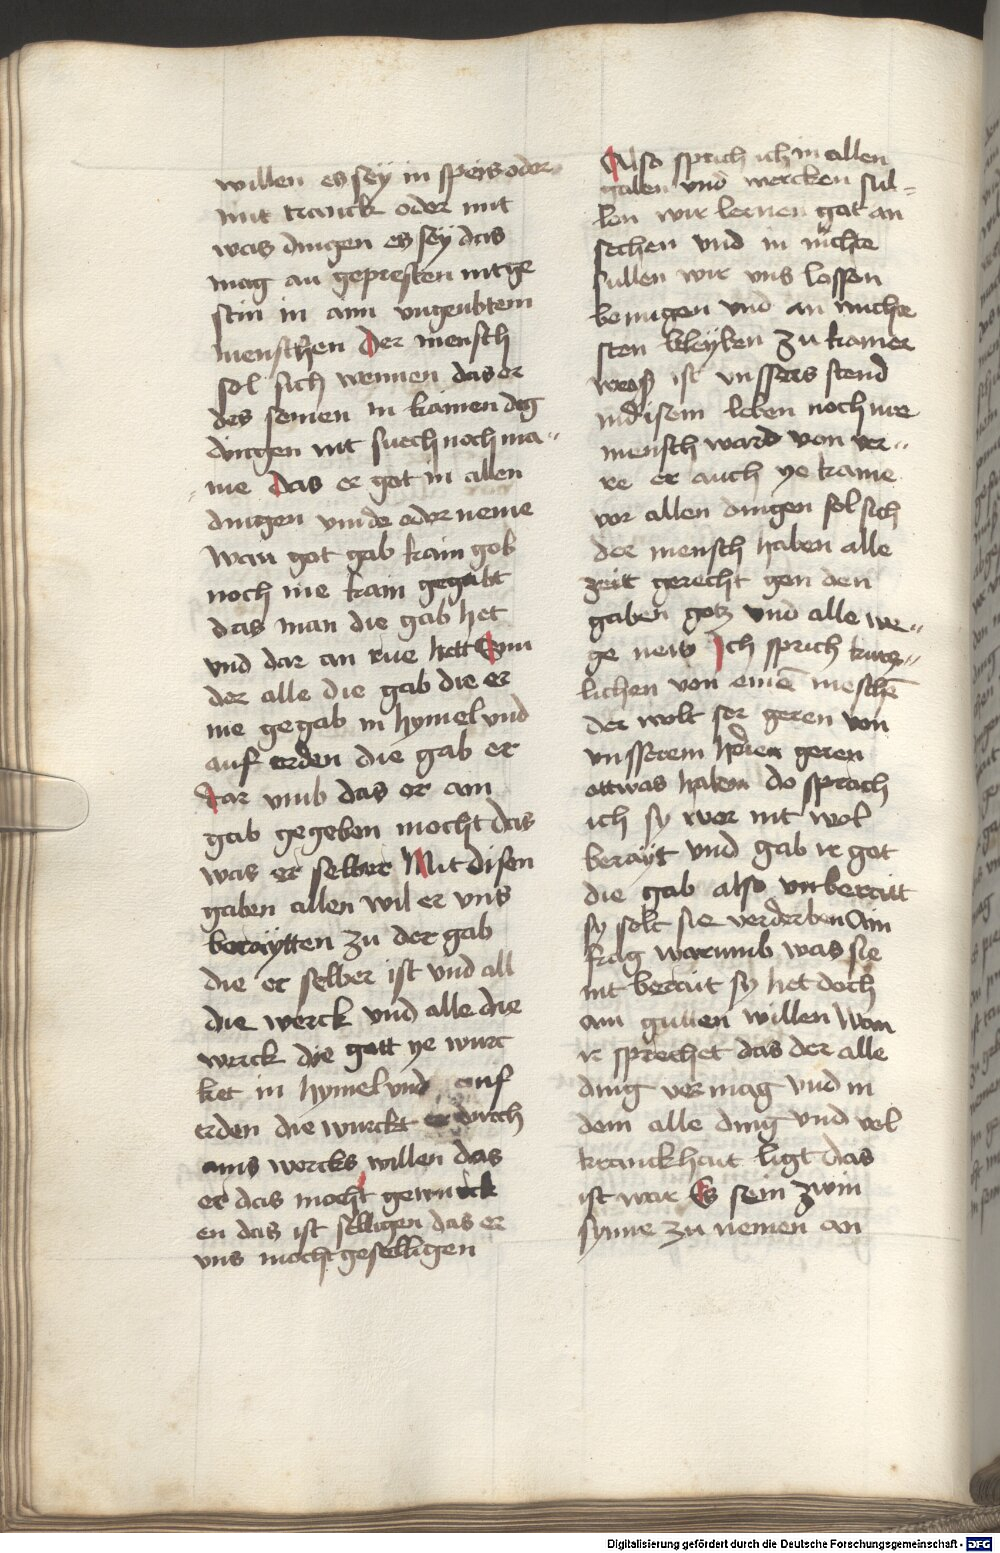 willen es seÿ in speis oder
mit tranck oder mit
was dingen es seÿ das
mag an gepresten nit ge
sein in aim vngeubtem
menschen Der mensch
sol sich wennen das er
des seinen in kainen
dingen nit suech noch ma„
ine Das er got in allen
dingen vinde oder neme
Wan got gab kain gob
noch nie kain gegabt
das man die gab het
vnd dar an rue hett
der alle die gab die er
nie gegab in hymel vnd
auf erden die gab er
Dar vmb das er ain
gab gegeben mocht das
was er selber Mit disen
gaben allen wil er vns
beraÿtten zu der gab
die er selber ist vnd all
die werck vnd alle die
werck die gott ye wurc
ket in hymel vnd auf
erden die wurckt er durch
ains wercks willen das
er das mocht gewurck
en das ist selligen das er
vns mocht geselligen
Also sprich ich in allen
gaben vnd wercken sul=
len wir lernen got an
sechen vnd in nichte
sullen wir vns lossen
benugen vnd an nichte
sten bleÿben zu kainer
weiß ist vnssers stend
in disem leben noch nie
mensch ward von ver„
re er auch ye kame
vor allen dingen sol sich
der mensch haben alle
zeit gerecht gen den
gaben gotz vnd alle we„
ge new Ich sprich kurtz„
lichen von einē meschē
der wolt ser geren von
vnsserem heren geren
ettwas haben do sprach
ich sy wer nit wol
beraÿt vnd gab ir got
die gab also vnberaitt
sy solt sie verderben Ain
frag warumb was sie
nit berait sy het doch
ain gutten willen Wan
ir sprechet das der alle
ding vermag vnd in
dem alle ding vnd vol
kranckhait ligt das
ist war Es sein zwin
synne zu nemen an
Digitalisierung gefördert durch die Deutsche Forschungsgemeinschaft - DFG